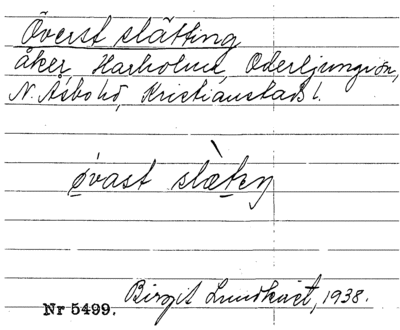 Överst slätting
åker, Harholma, Oderljungvon,
N. Åsbo hd, Kristianstads l.
øvast slætɩŋ
Birgit Lundkvist, 1938.
Nr 5499.